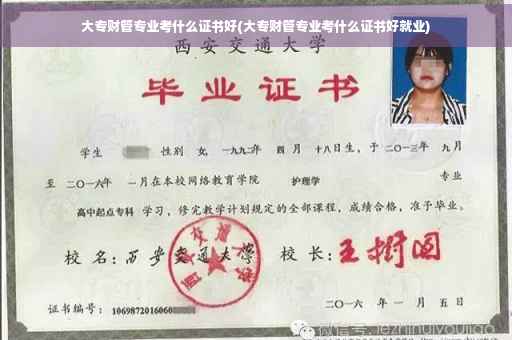 大专财管专业考什么证书好(大专财管专业考什么证书好就业)
西安交通大学
毕业证书
学生 性别 女, 一九九二年 四月 十八日生, 于二〇一三年 九月
至 二〇一六年 一月在本校网络教育学院 护理学 专业
高中起点专科 学习, 修完教学计划规定的全部课程, 成绩合格, 准予毕业。
校名: 西安交通大学 校长: 王树国
西安交通大学
证书编号: 1069872016060
二〇一六年 一月五日
微信号: jiezhinuiyoujiao